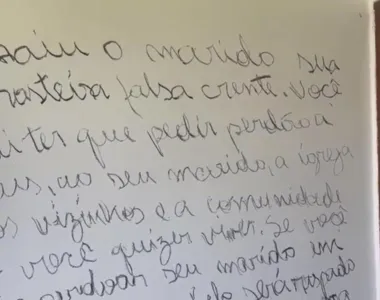 saiu o marido sua
rasteira falsa crente. Você
ter que pedir perdão a
us, ao seu marido, a igreja
os vizinhos e a comunidade
você quizer viver. Se você
perdoar seu marido em
será raspado